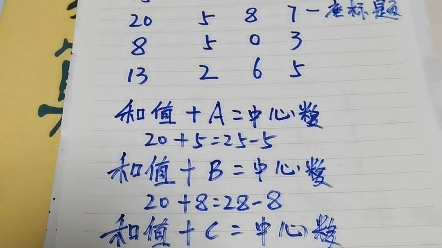 20 5 8 7一座标题
8 5 0 3
13 2 6 5
和值+A=中心数
20+5=25-5
和值+B=中心数
20+8=28-8
和值+C=中心数